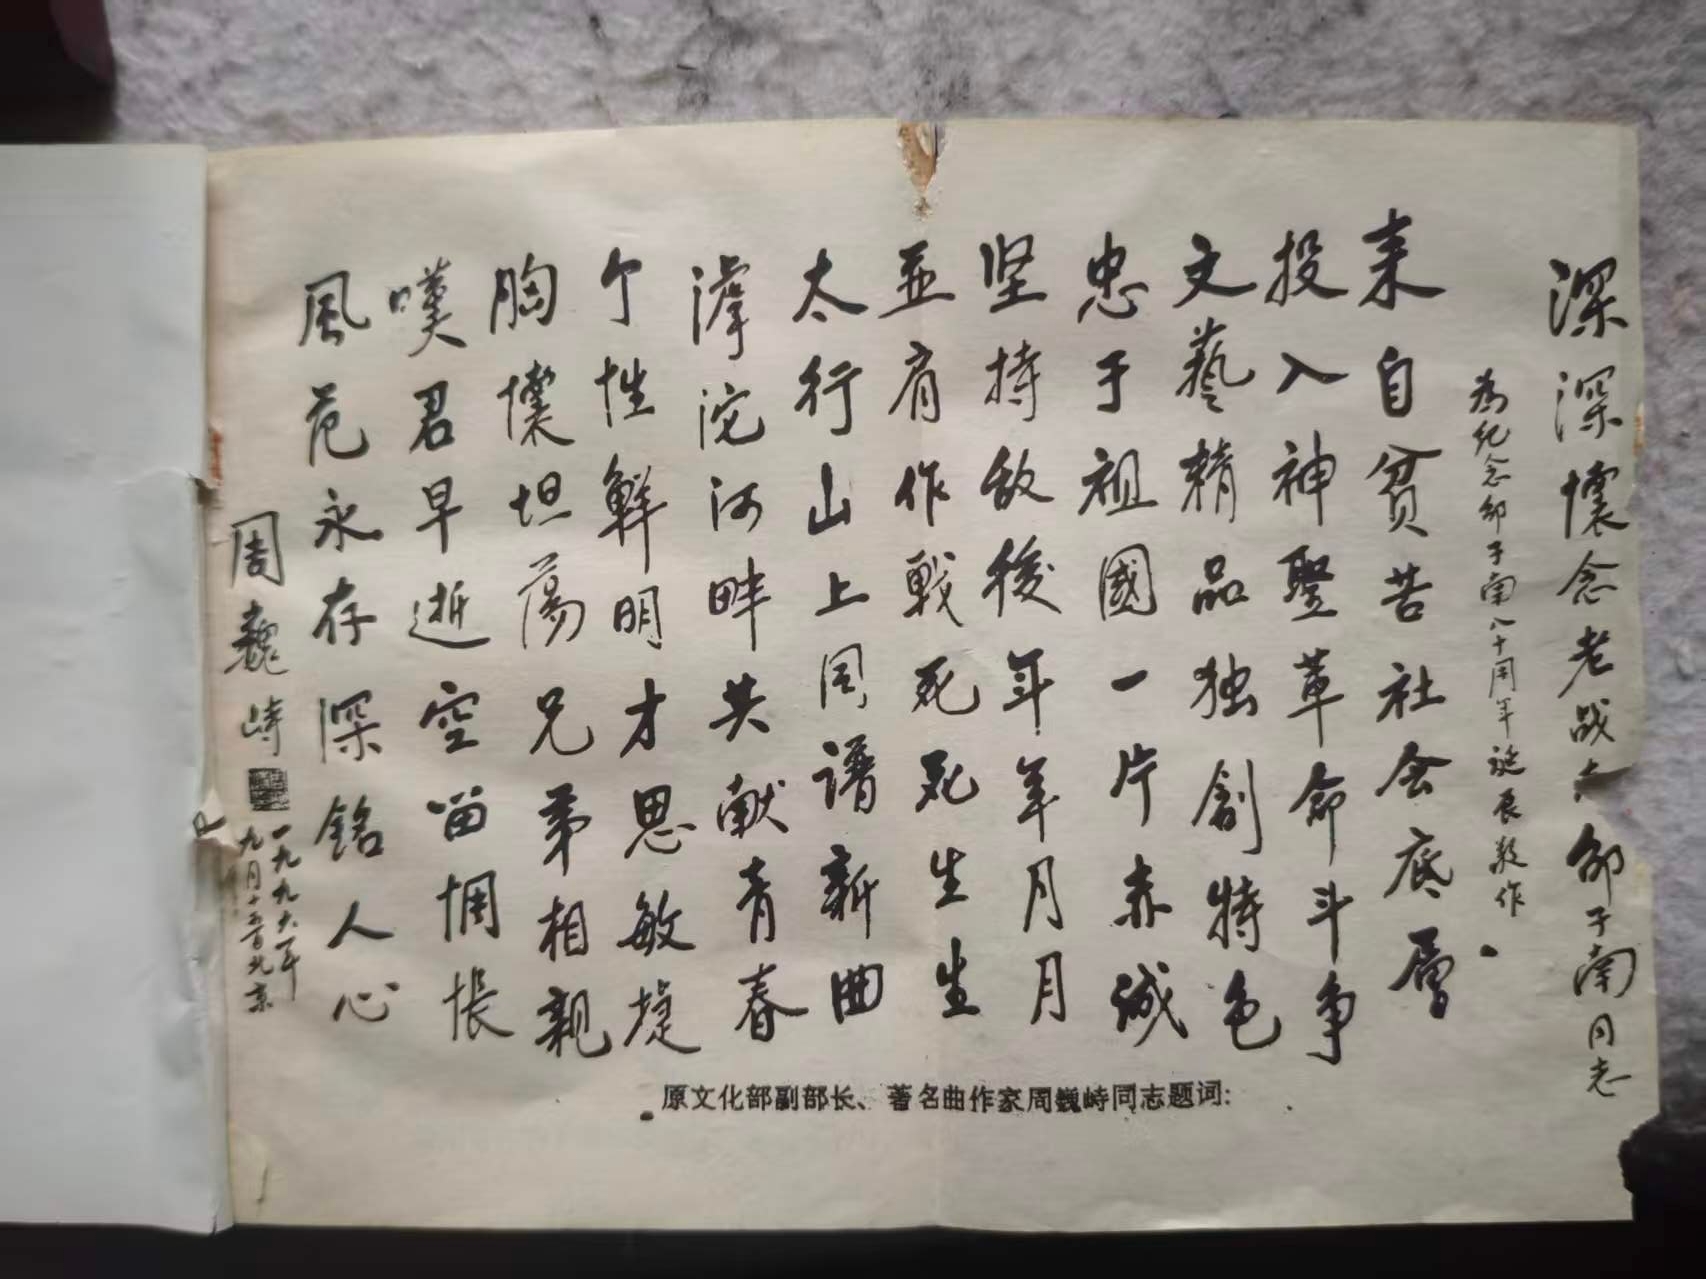 深深懷念老战友邵子南同志
为纪念邵子南八十周年诞辰敬作
来自貧苦社会底層
投入神聖革命斗争
文藝精品独創特色
忠于祖國一片赤誠
坚持敌後年年月月
並肩作戰死死生生
太行山上同譜新曲
滹沱河畔共献青春
个性鲜明才思敏捷
胸懷坦蕩兄弟相親
嘆君早逝空留惆悵
風范永存深銘人心
周巍峙
一九九六年
九月十五日北京
原文化部副部长、著名曲作家周巍峙同志题词: